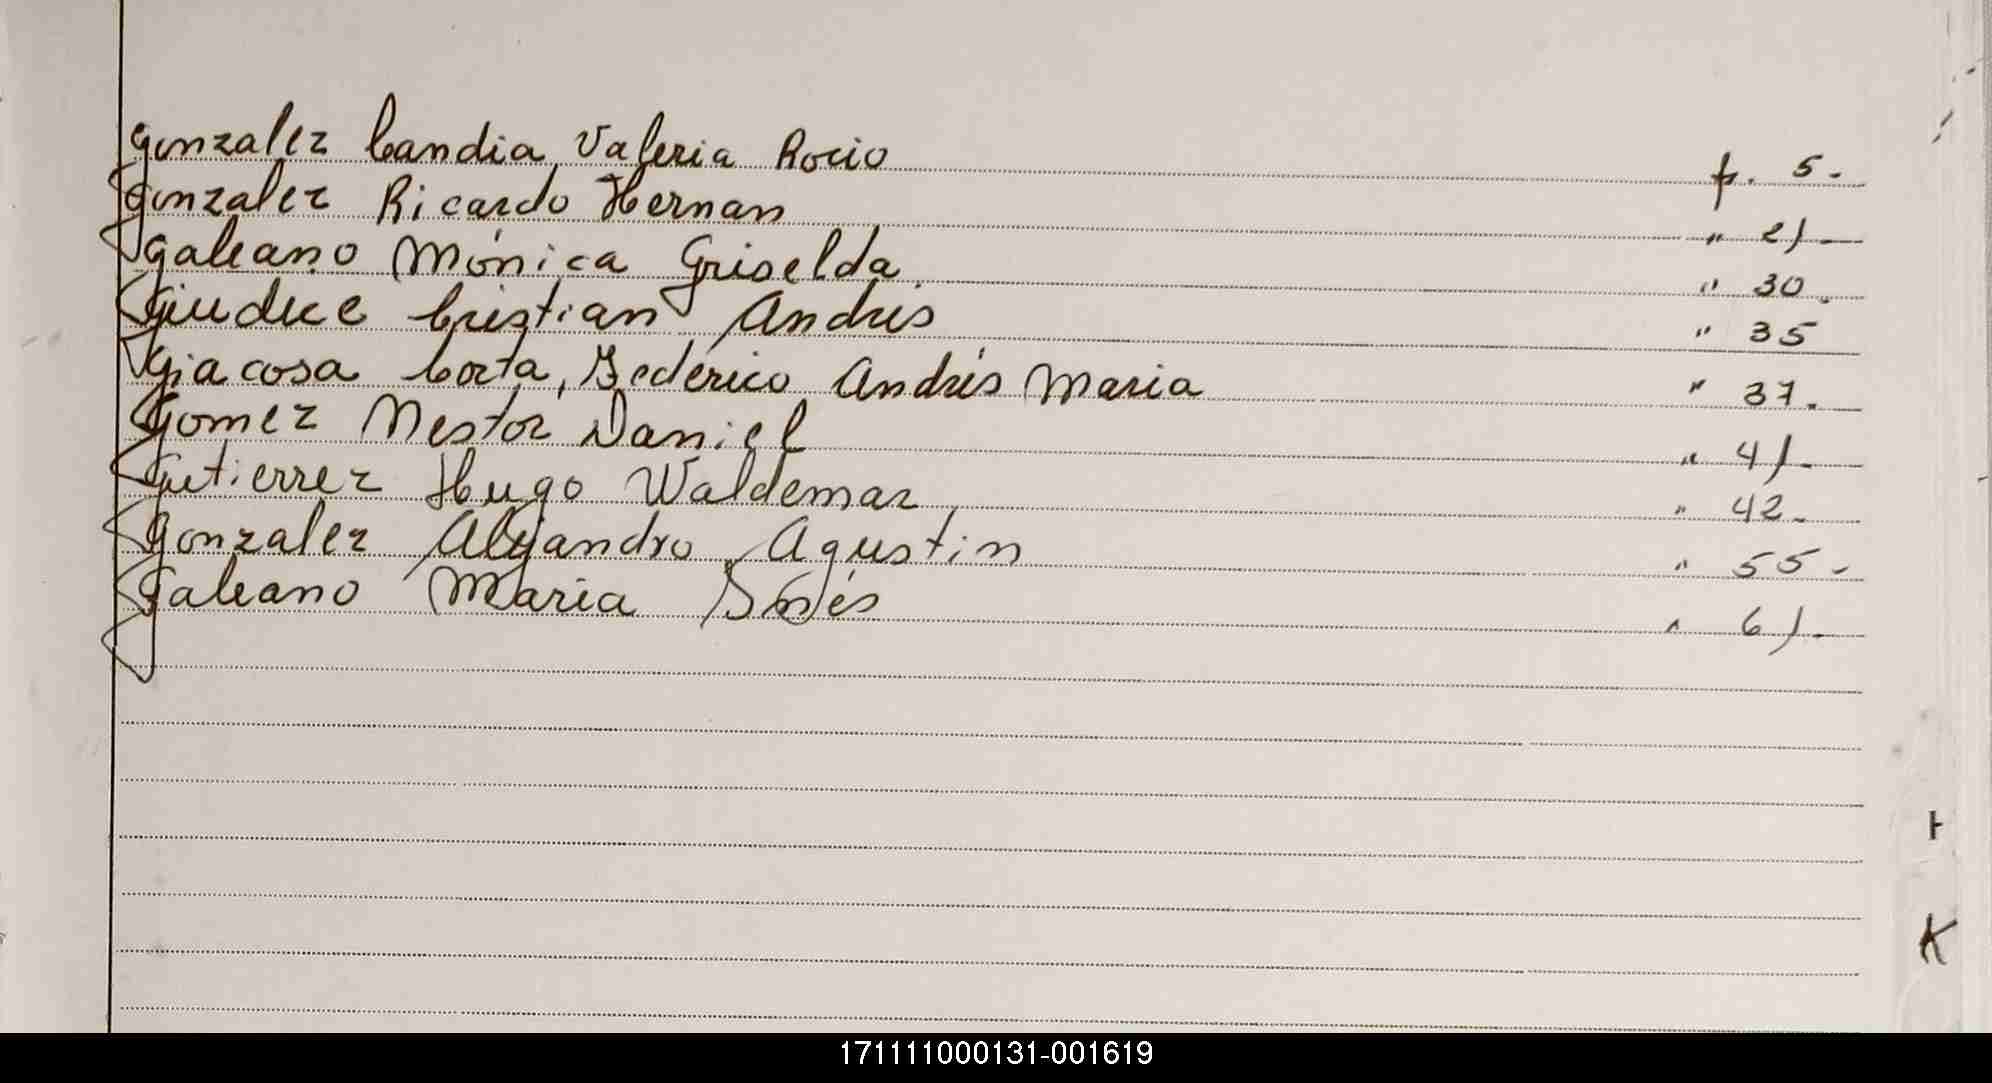 Gonzalez Candia Valeria Rocio f. 5.-
Gonzalez Ricardo Hernan " 21-
Galeano Mónica Griselda " 30.
Giudice Cristian Andrés " 35
Giacosa Corta, Federico Andrés Maria " 37.
Gomez Nestor Daniel " 41-
Gutierrez Hugo Waldemar " 42-
Gonzalez Alejandro Agustin " 55-
Galeano Maria Inés " 61-
K
171111000131-001619